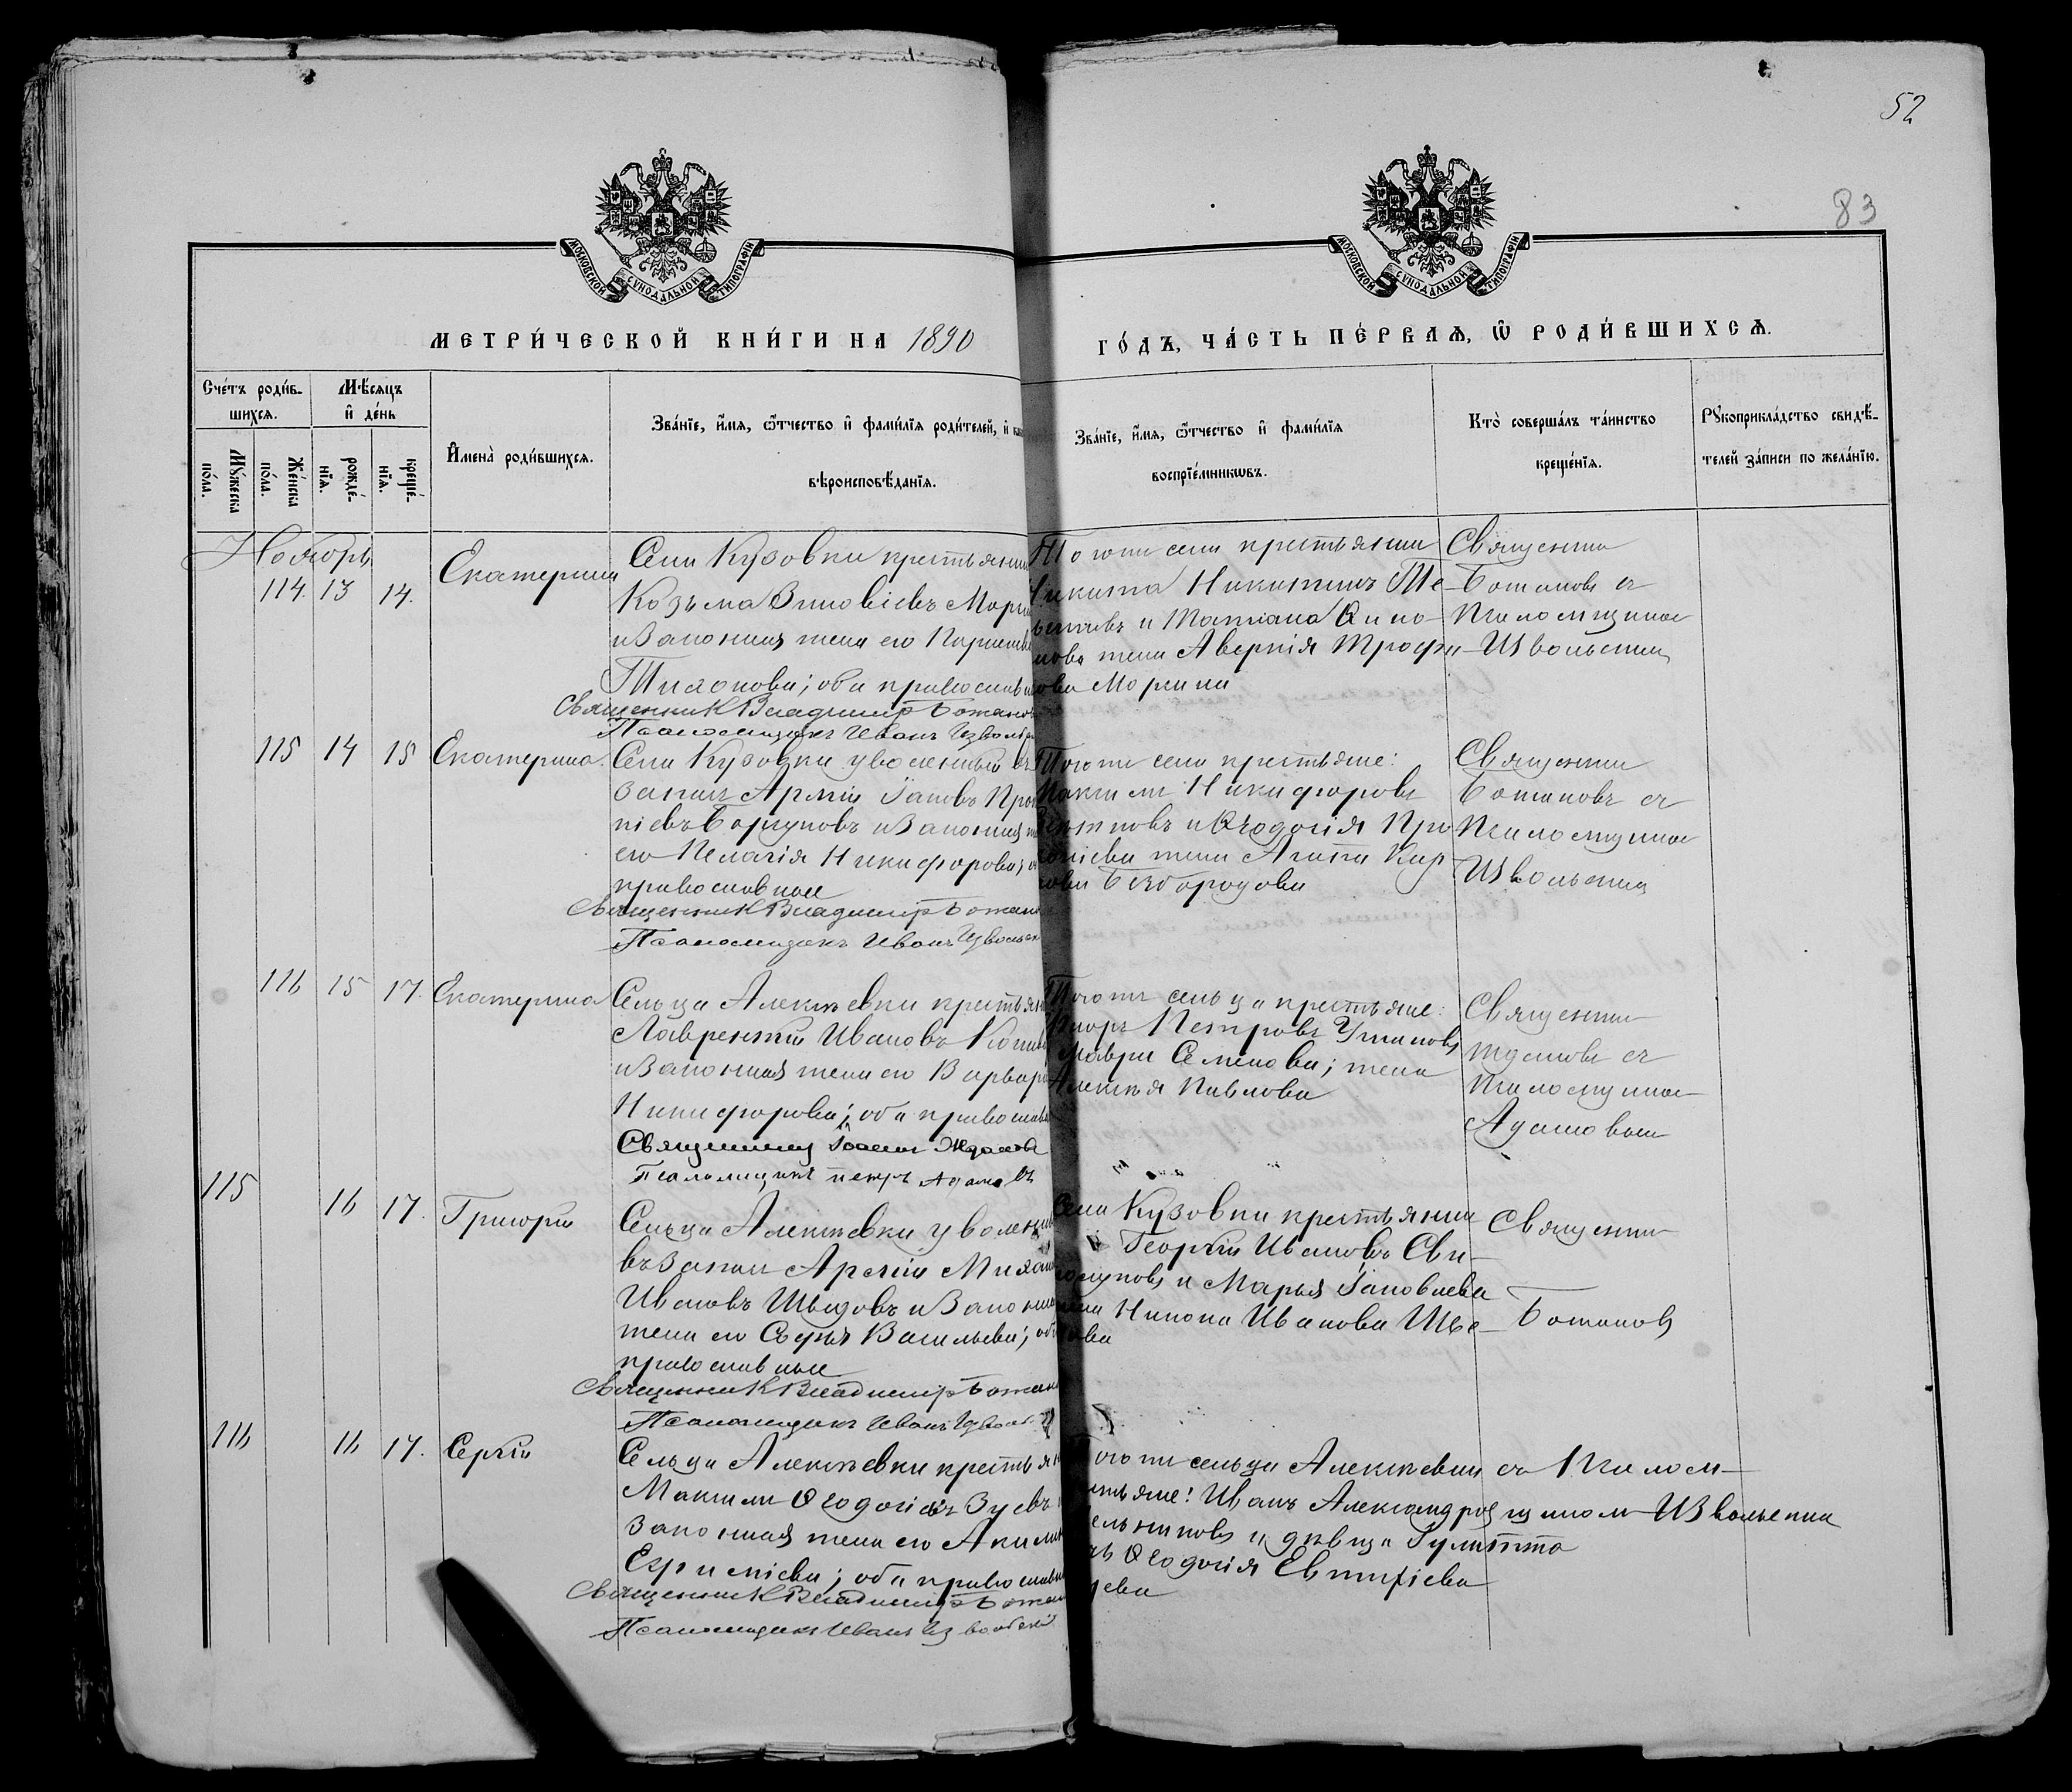 52
83
МОСКОВСКОЙ СѴНОДАЛЬНОЙ ТИПОГРАФІИ
МОСКОВСКОЙ СѴНОДАЛЬНОЙ ТИПОГРАФІИ
МЕТРИ́ЧЕСКОЙ КНИ́ГИ НА 1890
ГО́ДЪ, ЧА́СТЬ ПЕ́РВАѦ, Ѿ РОДИ́ВШИХСѦ.
Сче́тъ роди́в-
шихсѧ.
Мѣ́сѧцъ
и҆ де́нь
Мꙋ́жеска
по́ла.
Же́нска
по́ла.
рожде́-
нїѧ.
креще́-
нїѧ.
И҆мена̀ роди́вшихсѧ.
Зва́нїе, и҆́мѧ, ѻ҆́тчество и҆ фами́лїѧ роди́телей, и҆
вѣроисповѣ́данїѧ.
Зва́нїе, и҆́мѧ, ѻ҆́тчество и҆ фами́лїѧ
воспрїе́мникѡвъ.
Кто̀ соверша́лъ та́инство
креще́нїѧ.
Рꙋкоприкла́дство свидѣ́-
телей за́писи по жела́нїю.
Ноябрь
114. 13 14.
Екатерина
Села Кузовки крестьянин
Козьма Зиновіевъ
и законная жена его
Тихонова; оба православн
Священник Владимір Божанов
Псаломщикъ Иванъ Изволь
Того же села крестьянин
Никита Никитинъ Ше-
и Татіана
нова жена Аверкія Трофи-
ова Моркина
Священник
Божановъ съ
Псаломщиком
Извольским
115 14 15
Екатерина.
Села Кузовки уволенный въ
запас Арміи Іаковъ Про
піевъ и законная
его Пелагія Никифорова;
православные
Священник Владимір Божан
Псаломщикъ Иванъ Извольск
Того же села крестьяне:
Максим Никифоровъ
и Ѳеодосія Про
копіева жена Агапа Кар
пова Безбородова
Священник
Божановъ съ
Псаломщиком
Извольским
116 15 17.
Екатерина
Сельца Алексѣевки крестьян
Лаврентій Ивановъ
и законная жена его Варвара
Никифорова; оба православн
Священник Іоанн Ждановъ
Псаломщикъ петръ Адамовъ
Того же сельца крестьяне:
Петровъ Ушаковъ
Мавра Семенова; жена
Алексѣя Павлова
Священник
Ждановъ съ
Псаломщиком
Адамовым
115 16 17.
Григорій
Сельца Алексѣевки уволенный
въ запас Арміи Михаил
Ивановъ Шведовъ и законная
жена его Софья Васильева; оба
православные
Священник Владимір Божан
Псаломщикъ Иванъ Изволь
Села Кузовки крестьянин
Георгій Ивановъ Сви-
и Марья Іаковлева
жена Никона Иванова Шве-
дова
Священник
Божановъ
116 16 17.
Сергій
Сельца Алексѣевки крестьян
Максим Ѳеодосіевъ Зуевъ
законная жена его Акилина
оба православн
Священник Владимір Божан
Псаломщикъ Иванъ Извольскій
Того же сельца Алексѣевки
крестьяне: Иванъ Александров
и дѣвица
Ѳеодосія Евтихіева
Зуева
съ Псалом-
щиком Извольским